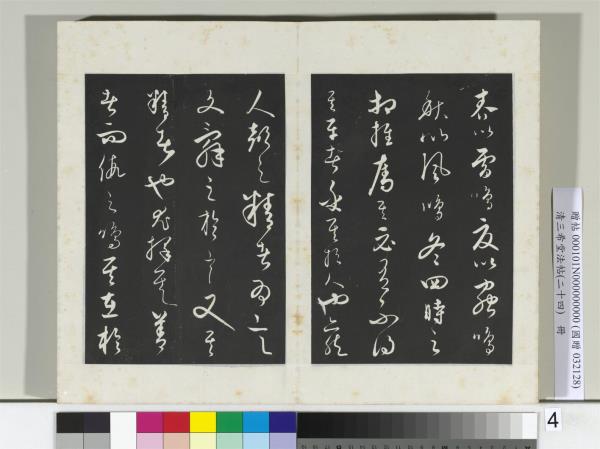 春以雷鳴夏以蟲鳴
秋以風鳴冬四時之
相推奪其必有不得
其平者乎其於人也亦然
人聲之精者為言
文辭之於言又其
精者也尤擇其善
者而假之鳴其在於
贈帖 000101N000000000 (國贈 032128)
清三希堂法帖(二十四) 冊
4